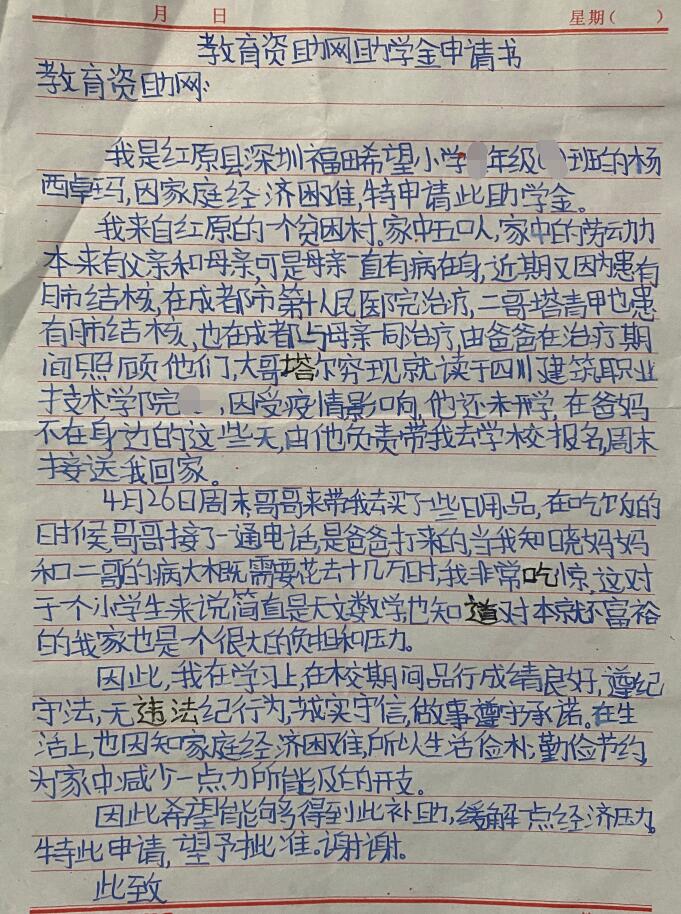 月 日 星期( )
教育资助网助学金申请书
教育资助网:
我是红原县深圳福田希望小学 年级( )班的杨
西卓玛,因家庭经济困难,特申请此助学金。
我来自红原的一个贫困村。家中五口人,家中的劳动力
本来有父亲和母亲,可是母亲一直有病在身,近期又因为患有
肺结核,在成都市第十人民医院治疗,二哥塔青甲也患
有肺结核,也在成都与母亲同治疗,由爸爸在治疗期
间照顾他们,大哥塔尔穷现就读于四川建筑职业
技术学院 ,因受疫情影响,他还未开学,在爸妈
不在身边的这些天,由他负责带我去学校报名,周末
接送我回家。
4月26日周末,哥哥来带我去买了一些日用品,在吃饭的
时候,哥哥接了一通电话,是爸爸打来的,当我知晓妈妈
和二哥的病大概需要花去十几万时,我非常吃惊,这对
于个小学生来说简直是天文数学,也知道对本就不富裕
的我家也是一个很大的负担和压力。
因此,我在学习上,在校期间品行成绩良好,遵纪
守法,无违法纪行为,诚实守信,做事遵守承诺。在生
活上,也因知家庭经济困难,所以生活俭朴,勤俭节约,
为家中减少一点力所能及的开支。
因此希望能够得到此补助,缓解一点经济压力。
特此申请,望予批准。谢谢。
此致